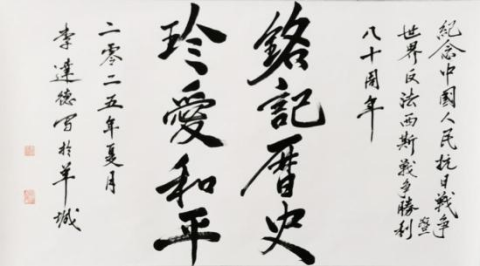 紀念中國人民抗日戰爭暨
世界反法西斯戰爭勝利
八十周年
銘記曆史
珍愛和平
二零二五年夏月
李達德写於羊城